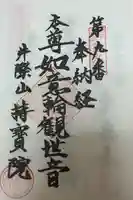 第九番
奉納経
本尊如意輪観世音
牛滌山
持寶院